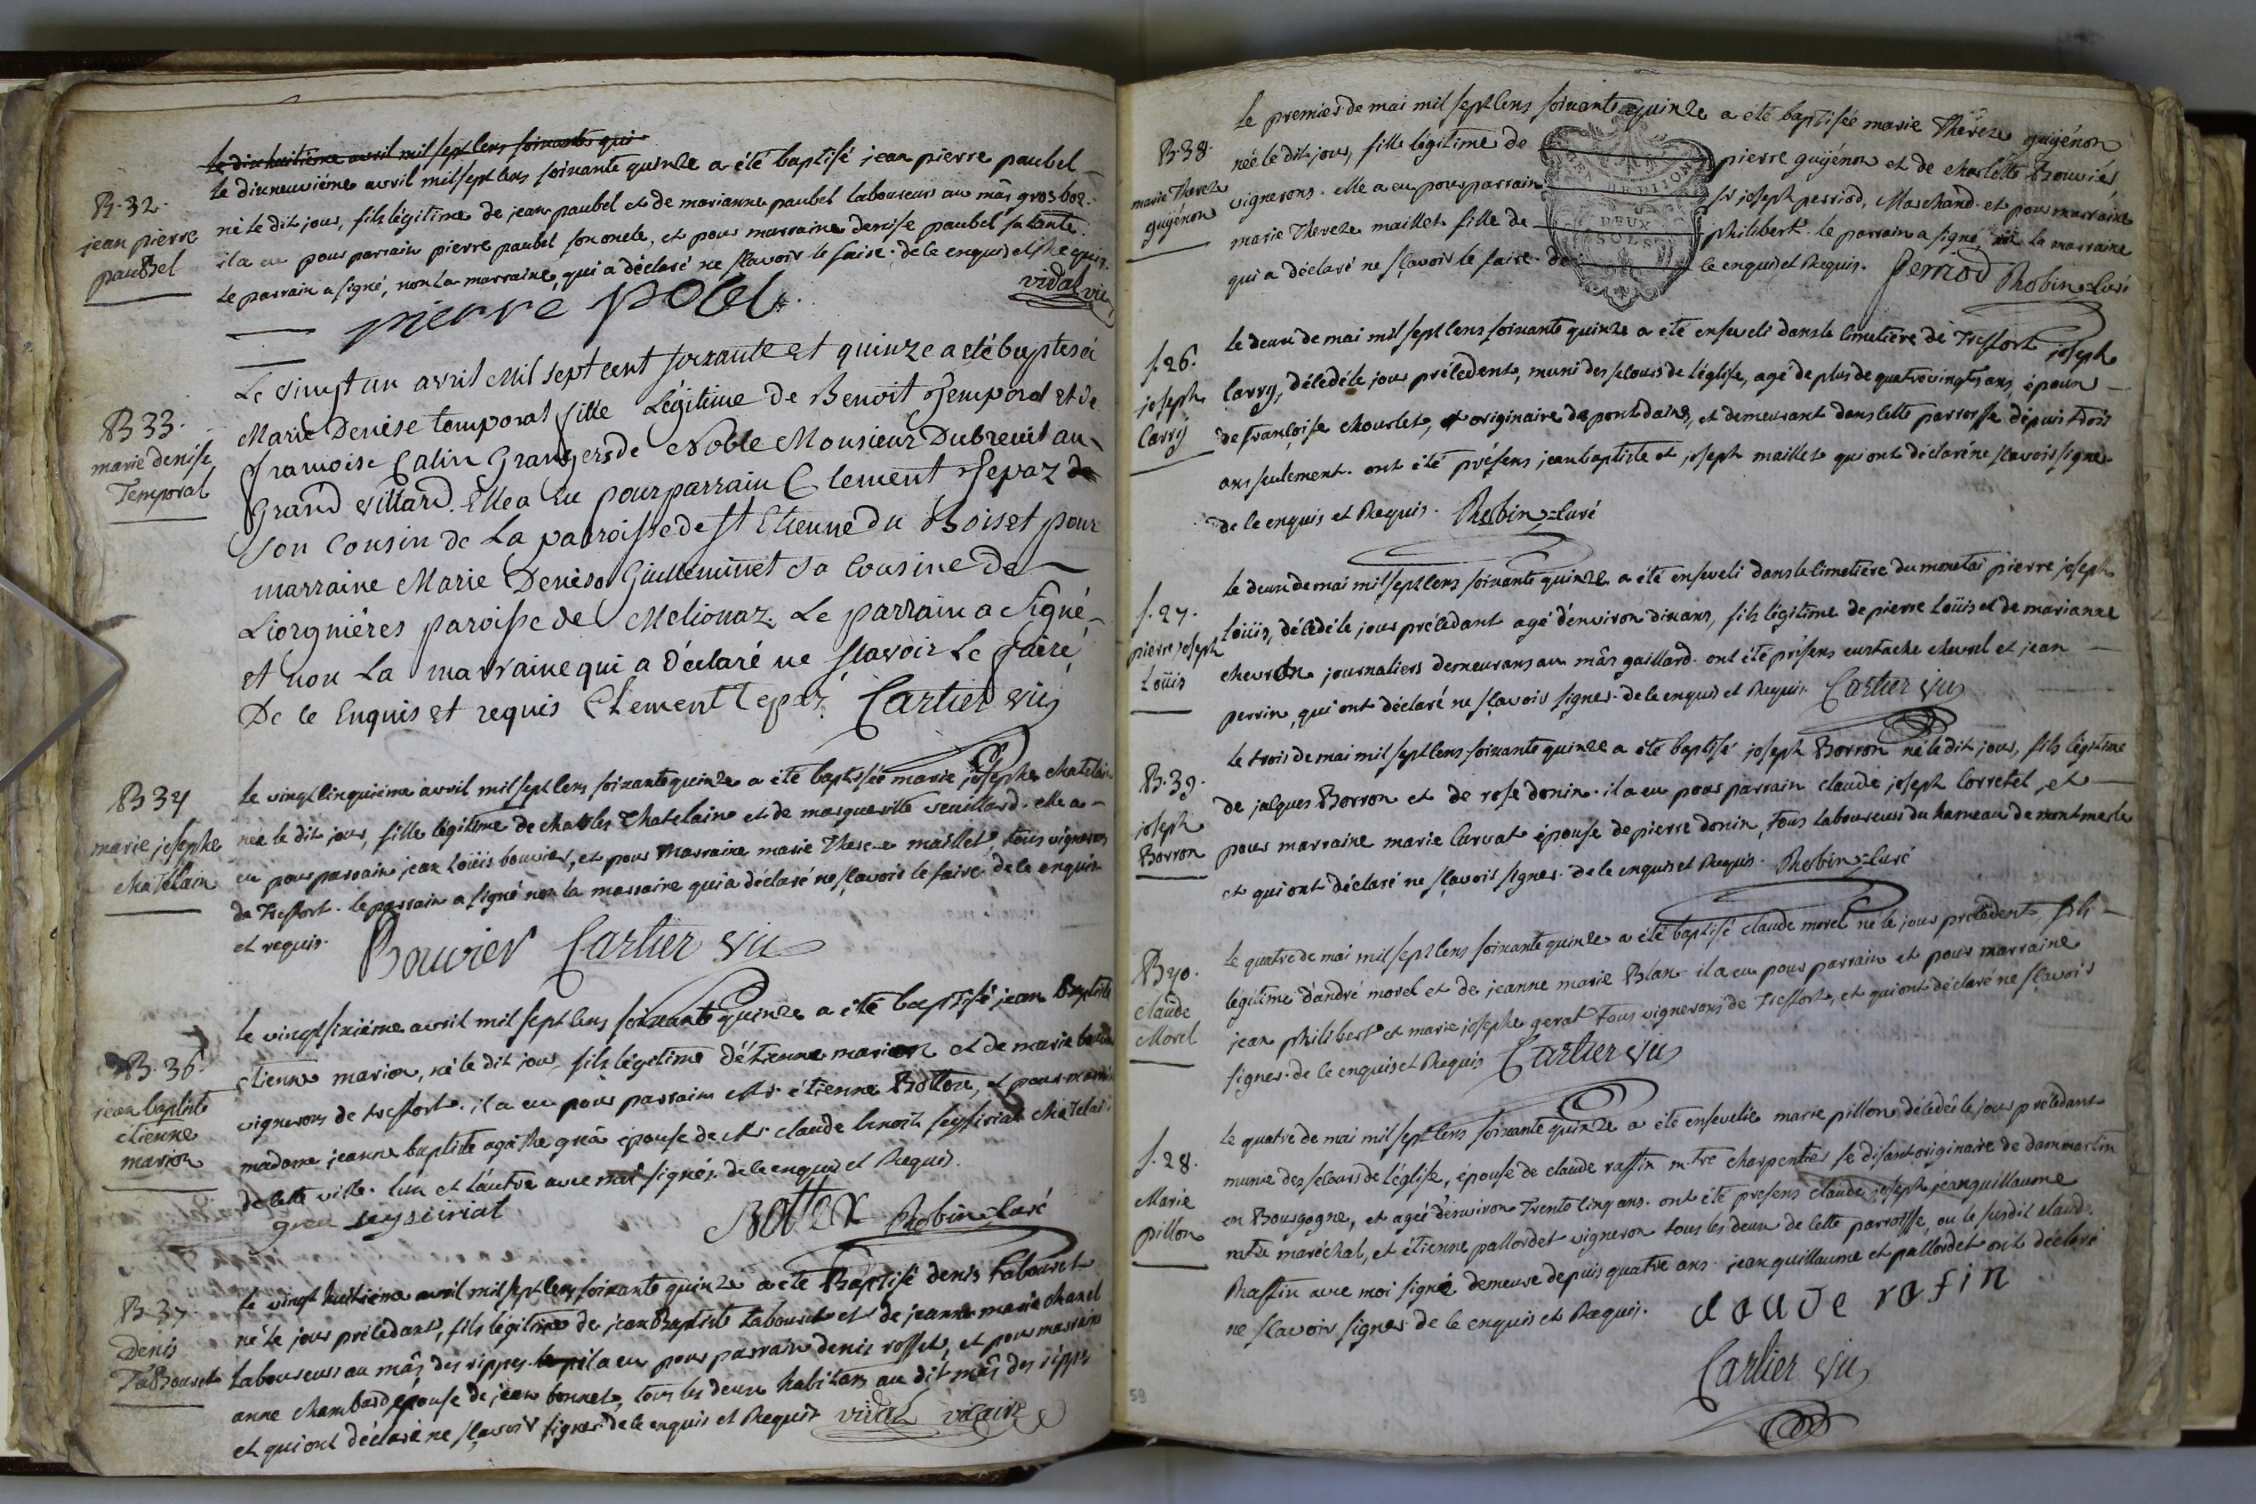 le dixhuitième avril mil sept cens soixante qui
B. 32.
jean pierre
pauBel
le dixneuvième avril mil sept cens soixante quinze a été baptisé jean pierre paubel
né le dit jour, fils légitime de jean paubel et de marianne paubel laboureurs au mâs gros boz.
il a eu pour parrain pierre paubel son oncle, et pour marraine denise paubel sa tante.
le parrain a signé, non la marraine, qui a déclaré ne sçavoir le faire. de ce enquis et requis.
pierre pobel
vidal vic
B 33.
marie denise
Temporal
Le vingt un avril Mil sept cent soixante et quinze a été baptisée
Marie Denise temporal fille Légitime de Benoit Temporal et de
françoise Calin Grangers de Noble Monsieur Dubreuil au
Grand villard. Elle a Eu pour parrain Clement Tepaz
son Cousin de La parroisse de st Etienne du Bois et pour
marraine Marie Denise Guilleminet sa Cousine de
Liorgnières paroisse de Melionaz. Le parrain a signé
et non La marraine qui a déclaré ne sçavoir Le faire,
De ce Enquis et requis Clement Tepaz Cartier vic
B 34
marie josephe
chatelain
le vingt cinquième avril mil sept cens soixante quinze a été baptisée marie josephe chatelain
née le dit jour, fille légitime de charles chatelain et de marguerite veuillard. elle a
eu pour parrain jean Loüis bouvier, et pour Marraine marie Therese maillet, tous vignerons
de Treffort. le parrain a signé non la marraine qui a déclaré ne sçavoir le faire. de ce enquis
et requis.
Bouvier Cartier vic
B. 36.
jean baptiste
etienne
marion
le vingt sixième avril mil sept cens soixante quinze a été baptisé jean Baptiste
etienne marion, né le dit jour, fils légitime d'étienne marion et de marie
vignerons de treffort. il a eu pour parrain Mr étienne Bottex, et pour
madame jeanne baptiste agathe greâ épouse de Mr claude benoit seysiriat chatelain
de cette ville. l'un et l'autre avec moi signés. de ce enquis et Requis.
grea seysiriat
Bottex Robin Curé
B. 37.
Denis
TaBouret
le vingt huitième avril mil sept cens soixante quinze a été Baptisé denis tabouret
né le jour précédant, fils légitime de jean Baptiste tabouret et de jeanne marie chanel
Laboureurs au mâs des rippes. il a eu pour parrain denis rosset, et pour marraine
anne chambard épouse de jean bonnet, tous les deux habitans au dit mâs des rippes
et qui ont déclaré ne sçavoir signer. de ce enquis et Requis vidal vicaire
B. 38.
marie Thereze
guyénon
Le premier de mai mil sept cens soixante quinze a été baptisée marie Théreze guyénon
née le dit jour, fille légitime de pierre guyénon et de charlotte Bouvier,
vignerons. elle a eu pour parrain sr joseph perriod, Marchand. et pour marraine
marie Thereze maillet fille de philibert. le parrain a signé, la marraine
qui a déclaré ne sçavoir le faire. de ce enquis et Requis. Perriod Robin Curé
DEUX
SOLS
s. 26.
joseph
Carry
le deux de mai mil sept cens soixante quinze a été enseveli dans le cimetière de Treffort joseph
Carry, décédé le jour précédent, muni des secours de l'église, agé de plus de quatre vingts ans, époux
de françoise chourlet, originaire de pont dains, et demeurant dans cette parroisse dépuis trois
ans seulement. ont été présens jean baptiste et joseph maillet qui ont déclaré ne sçavoir signer.
de ce enquis et Requis. Robin Curé
s. 27.
pierre joseph
Loüis
le deux de mai mil sept cens soixante quinze a été enseveli dans le cimetière du monetai pierre joseph
Loüis, décédé le jour précédant agé d'environ dix ans, fils légitime de pierre Loüis et de marianne
chevron journaliers demeurans au mâs gaillard. ont été présens eustache chevrel et jean
perrin, qui ont déclaré ne sçavoir signer. de ce enquis et Requis. Cartier vic
B. 39.
joseph
Borron
le trois de mai mil sept cens soixante quinze a été baptisé joseph Borron né le dit jour, fils légitime
de jacques Borron et de rose donin. il a eu pour parrain claude joseph Corretel, et
pour marraine marie Carvat épouse de pierre donin, tous laboureurs du hameau de montmerle
et qui ont déclaré ne sçavoir signer. de ce enquis et Requis. Robin Curé
B 40.
claude
Morel
le quatre de mai mil sept cens soixante quinze a été baptisé claude morel né le jour précédent, fils
légitime d'andré morel et de jeanne marie Blan. il a eu pour parrain et pour marraine
jean philibert et marie josephe gerat tous vignerons de Treffort, et qui ont déclaré ne sçavoir
signer. de ce enquis et Requis Cartier vic
s. 28.
Marie
pillon
le quatre de mai mil sept cens soixante quinze a été ensevelie marie pillon décédée le jour précédant
munie des secours de l'église, épouse de claude raffin m.tre charpentier se disant originaire de dammartin
en Bourgogne, et agée d'environ trente cinq ans. ont été présens claude joseph jeanguillaume
m.tre maréchal, et étienne pallordet vigneron tous les deux de cette parroisse, ou le susdit claude
Raffin avec moi signé demeure depuis quatre ans. jeanguillaume et pallordet ont déclaré
ne sçavoir signer. de ce enquis et Requis. claude rafin
Cartier vic
59